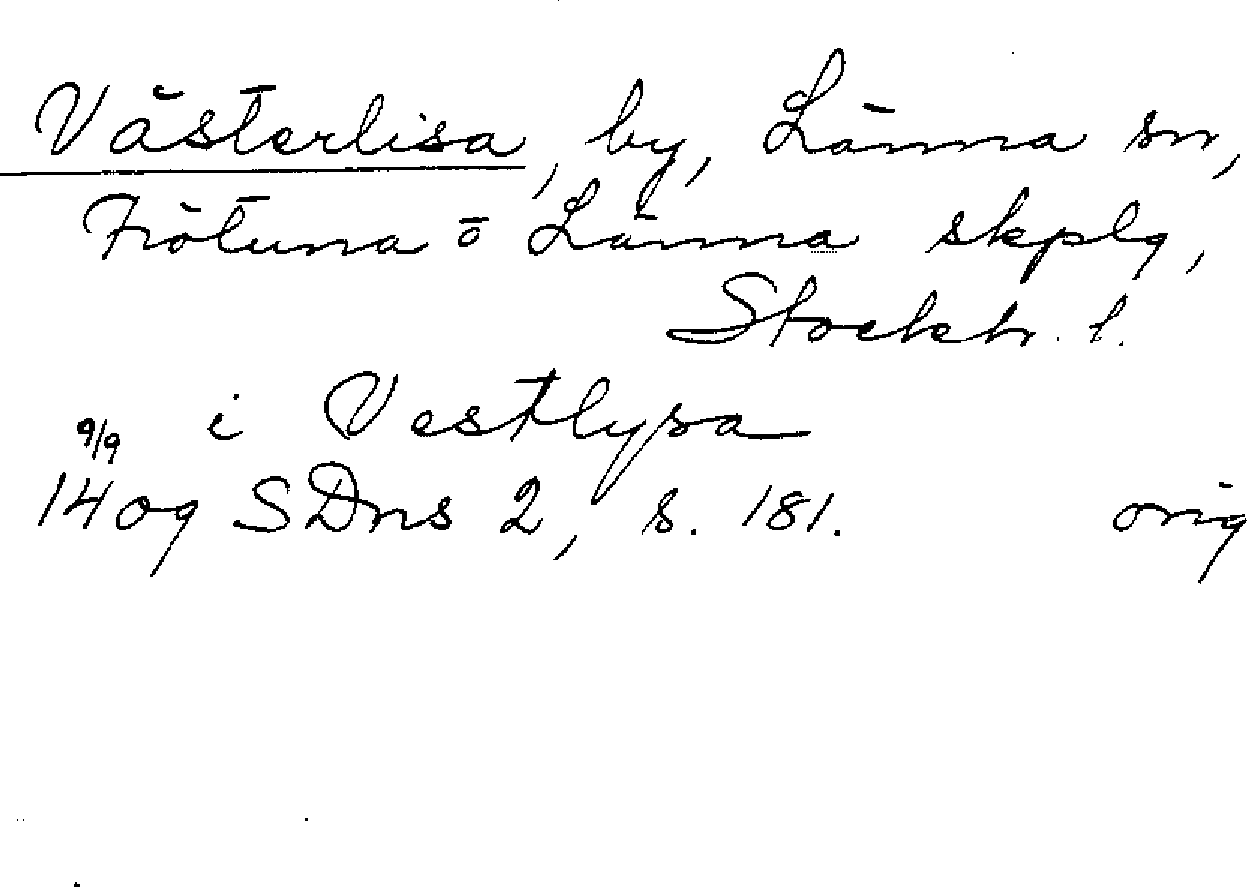 Västerlisa, by, Länna sn,
Frötuna o Länna skplg,
Stockh. l.
i Vestlysa
9/9
1409 SDns 2, s. 181. orig